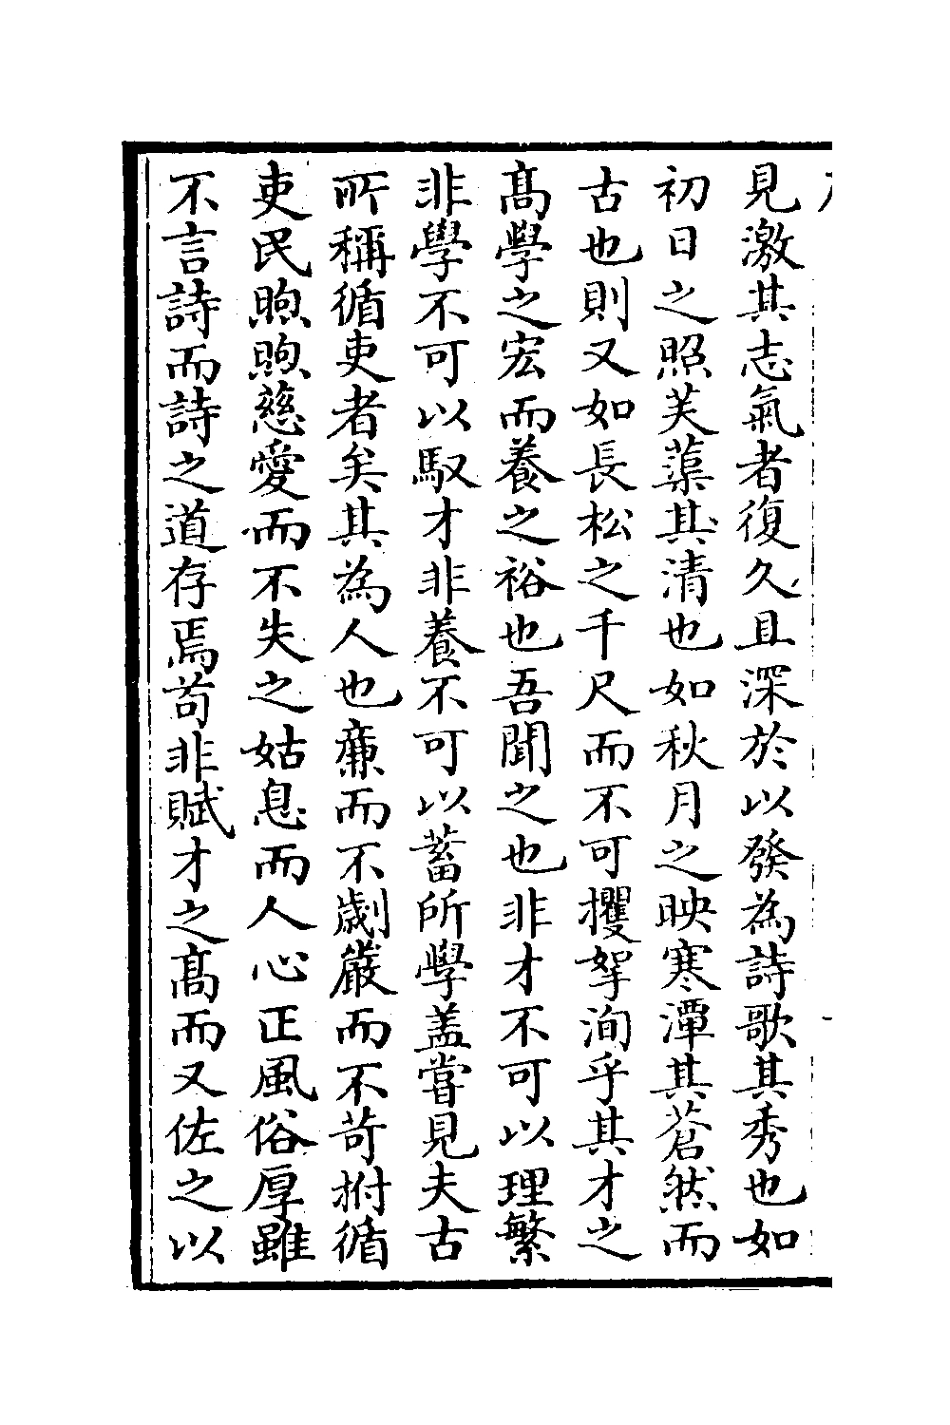 見激其志氣者復久且深於以發為詩歌其秀也如
初日之照芙蕖其清也如秋月之映寒潭其蒼然而
古也則又如長松之千尺而不可攫拏洵乎其才之
髙學之宏而養之裕也吾聞之也非才不可以理繁
非學不可以馭才非養不可以蓄所學盖嘗見夫古
所稱循吏者矣其為人也廉而不劌嚴而不苛拊循
吏民煦煦慈愛而不失之姑息而人心正風俗厚雖
不言詩而詩之道存焉苟非賦才之髙而又佐之以